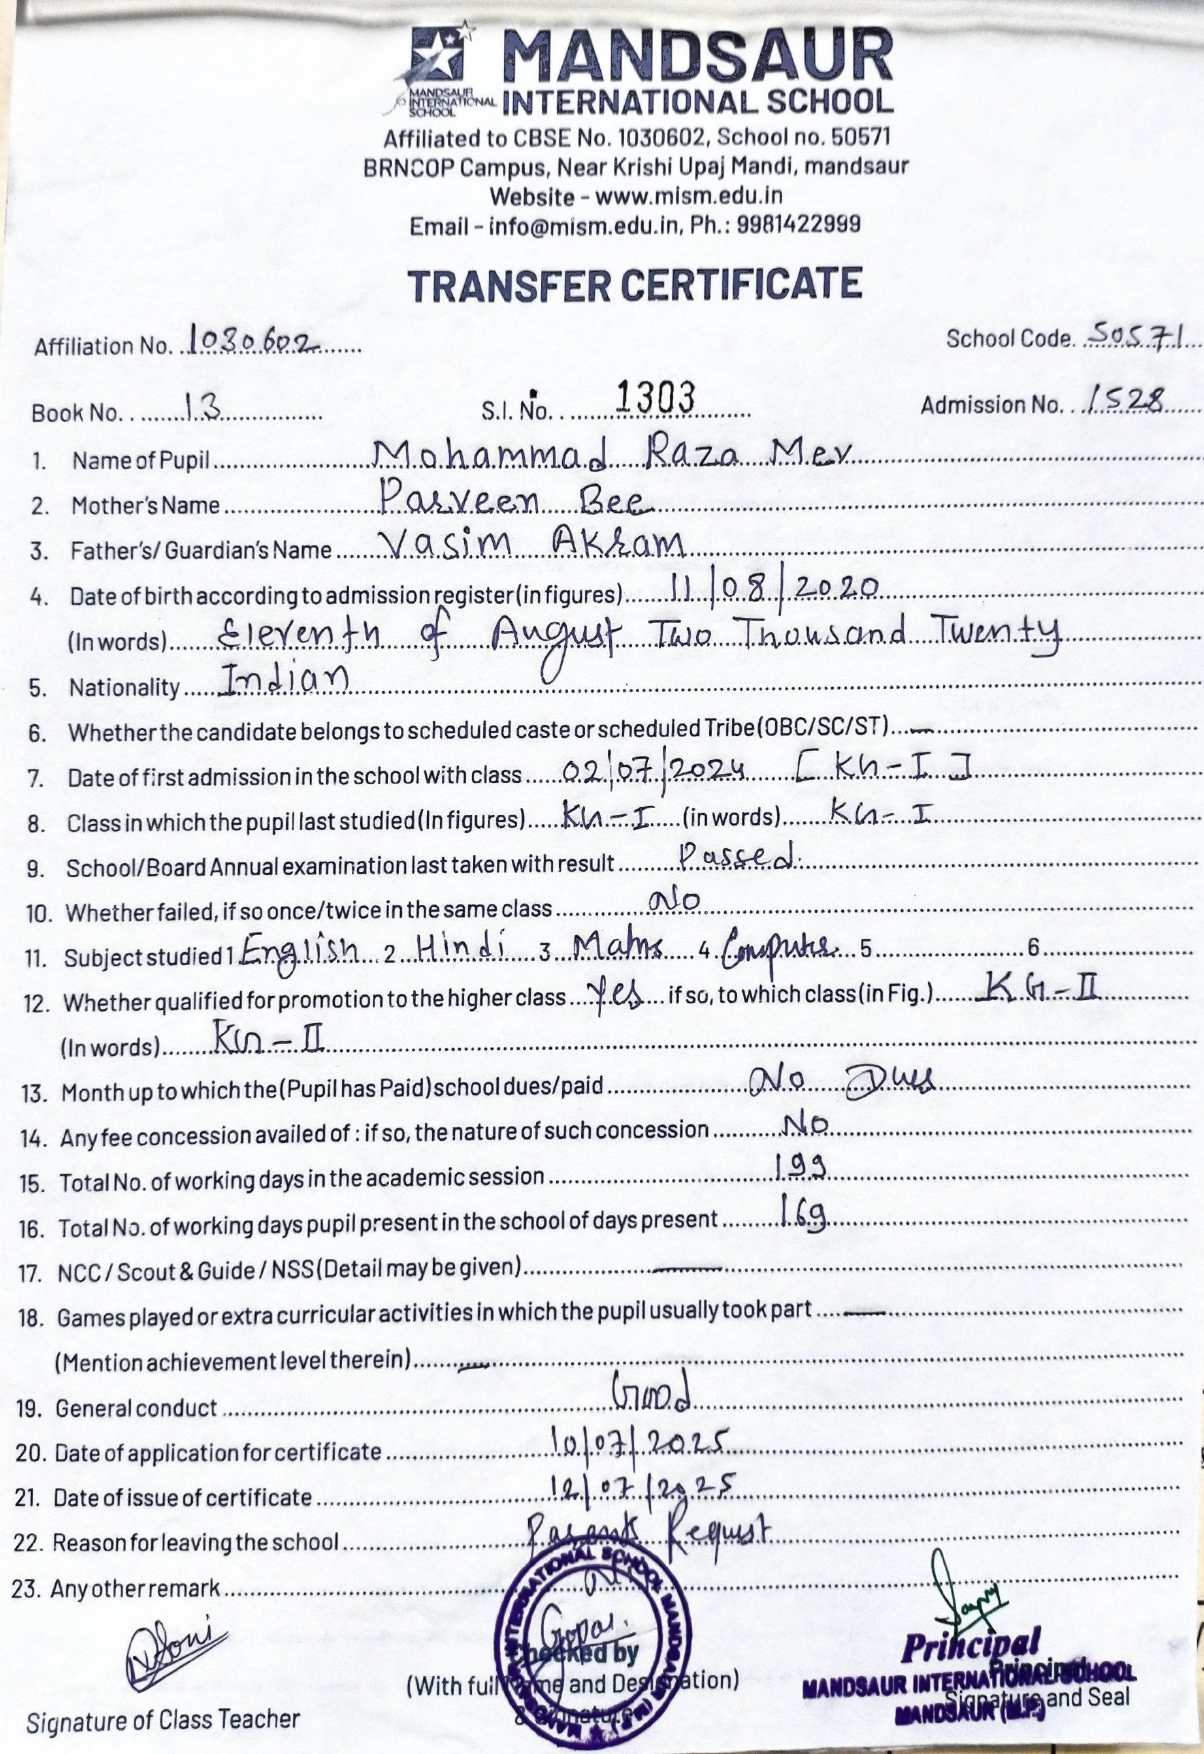 MANDSAUR
INTERNATIONAL SCHOOL
MANDSAUR
INTERNATIONAL
SCHOOL
Affiliated to CBSE No. 1030602, School no. 50571
BRNCOP Campus, Near Krishi Upaj Mandi, mandsaur
Website - www.mism.edu.in
Email - info@mism.edu.in, Ph.: 9981422999
TRANSFER CERTIFICATE
Affiliation No. 1030602 School Code. 50571
Book No. 13 S.I. No. 1303 Admission No. 1528
1. Name of Pupil Mohammad Raza Mev
2. Mother's Name Parveen Bee
3. Father's/ Guardian's Name Vasim Akram
4. Date of birth according to admission register (in figures) 11/08/2020
(In words) Eleventh of August Two Thousand Twenty
5. Nationality Indian
6. Whether the candidate belongs to scheduled caste or scheduled Tribe (OBC/SC/ST) —
7. Date of first admission in the school with class 02/07/2024 [KG-I]
8. Class in which the pupil last studied (In figures) KG-I (in words) KG-I
9. School/Board Annual examination last taken with result Passed.
10. Whether failed, if so once/twice in the same class No
11. Subject studied 1 English 2 Hindi 3 Maths 4. Computer 5 6
12. Whether qualified for promotion to the higher class Yes if so, to which class (in Fig.) KG-II
(In words) KG-II
13. Month up to which the (Pupil has Paid) school dues/paid No Dues
14. Any fee concession availed of : if so, the nature of such concession No
15. Total No. of working days in the academic session 199
16. Total No. of working days pupil present in the school of days present 169
17. NCC / Scout & Guide / NSS (Detail may be given) —
18. Games played or extra curricular activities in which the pupil usually took part —
(Mention achievement level therein) —
19. General conduct Good
20. Date of application for certificate 10/07/2025
21. Date of issue of certificate 12/07/2025
22. Reason for leaving the school Parents Request
23. Any other remark
Soni
Gopal
Checked by
(With full Name and Designation)
& Signature
INTERNATIONAL SCHOOL MANDSAUR (M.P.)
Principal
MANDSAUR INTERNATIONAL SCHOOL
MANDSAUR (M.P.)
Principal
Signature and Seal
Signature of Class Teacher